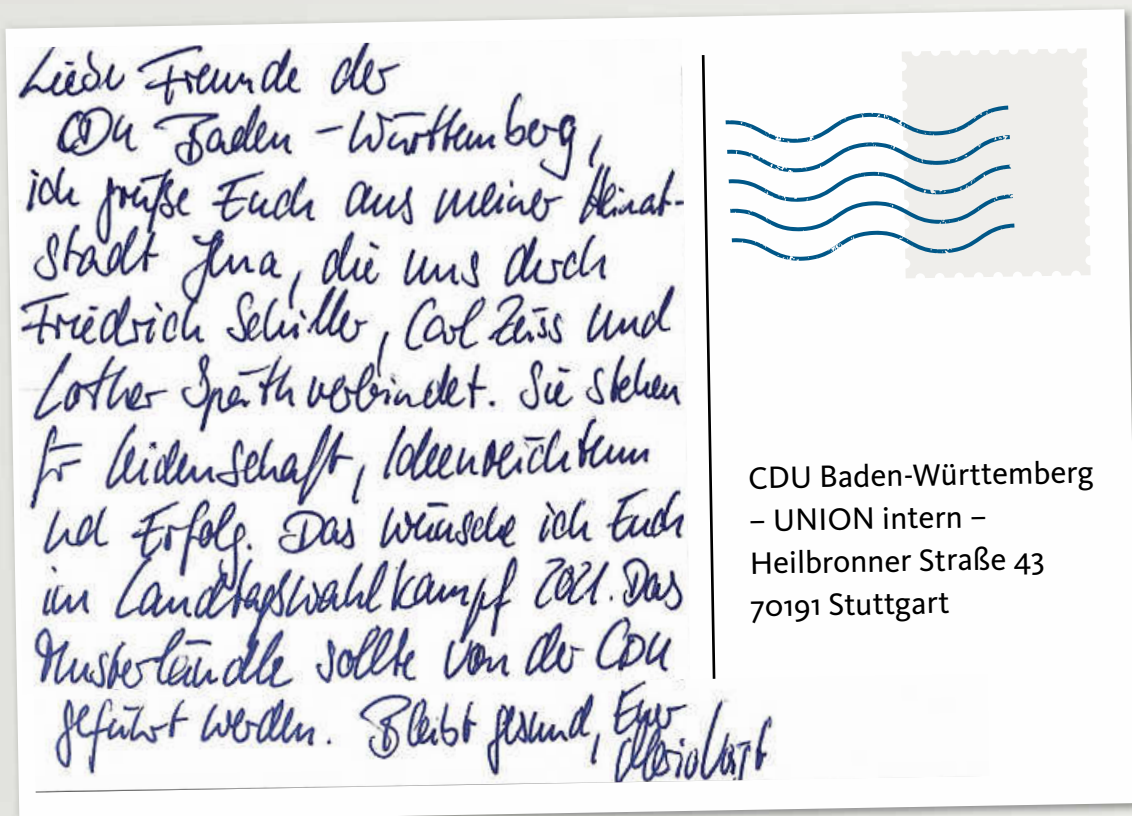 Liebe Freunde der
CDU Baden-Württemberg,
ich grüße Euch aus meiner Heimat-
stadt Jena, die uns durch
Friedrich Schiller, Carl Zeiss und
Lothar Späth verbindet. Sie stehen
für Leidenschaft, Ideenreichtum
und Erfolg. Das wünsche ich Euch
im Landtagswahlkampf 2021. Das
Musterländle sollte von der CDU
geführt werden. Bleibt gesund, Euer
Mario Voigt
CDU Baden-Württemberg
– UNION intern –
Heilbronner Straße 43
70191 Stuttgart